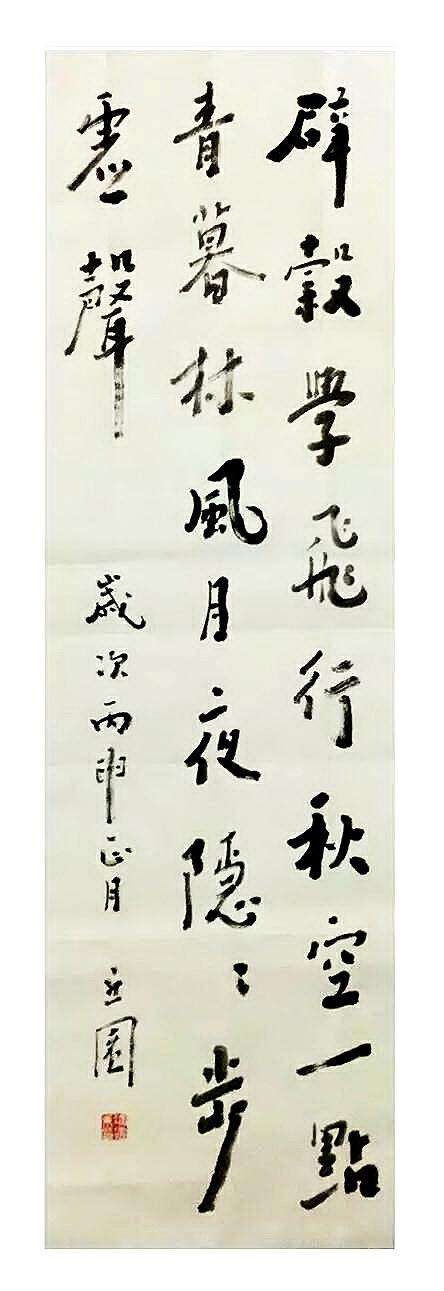 辟穀學飛行秋空一點
青暮林風月夜隱〻步
虛聲
歲次丙申正月